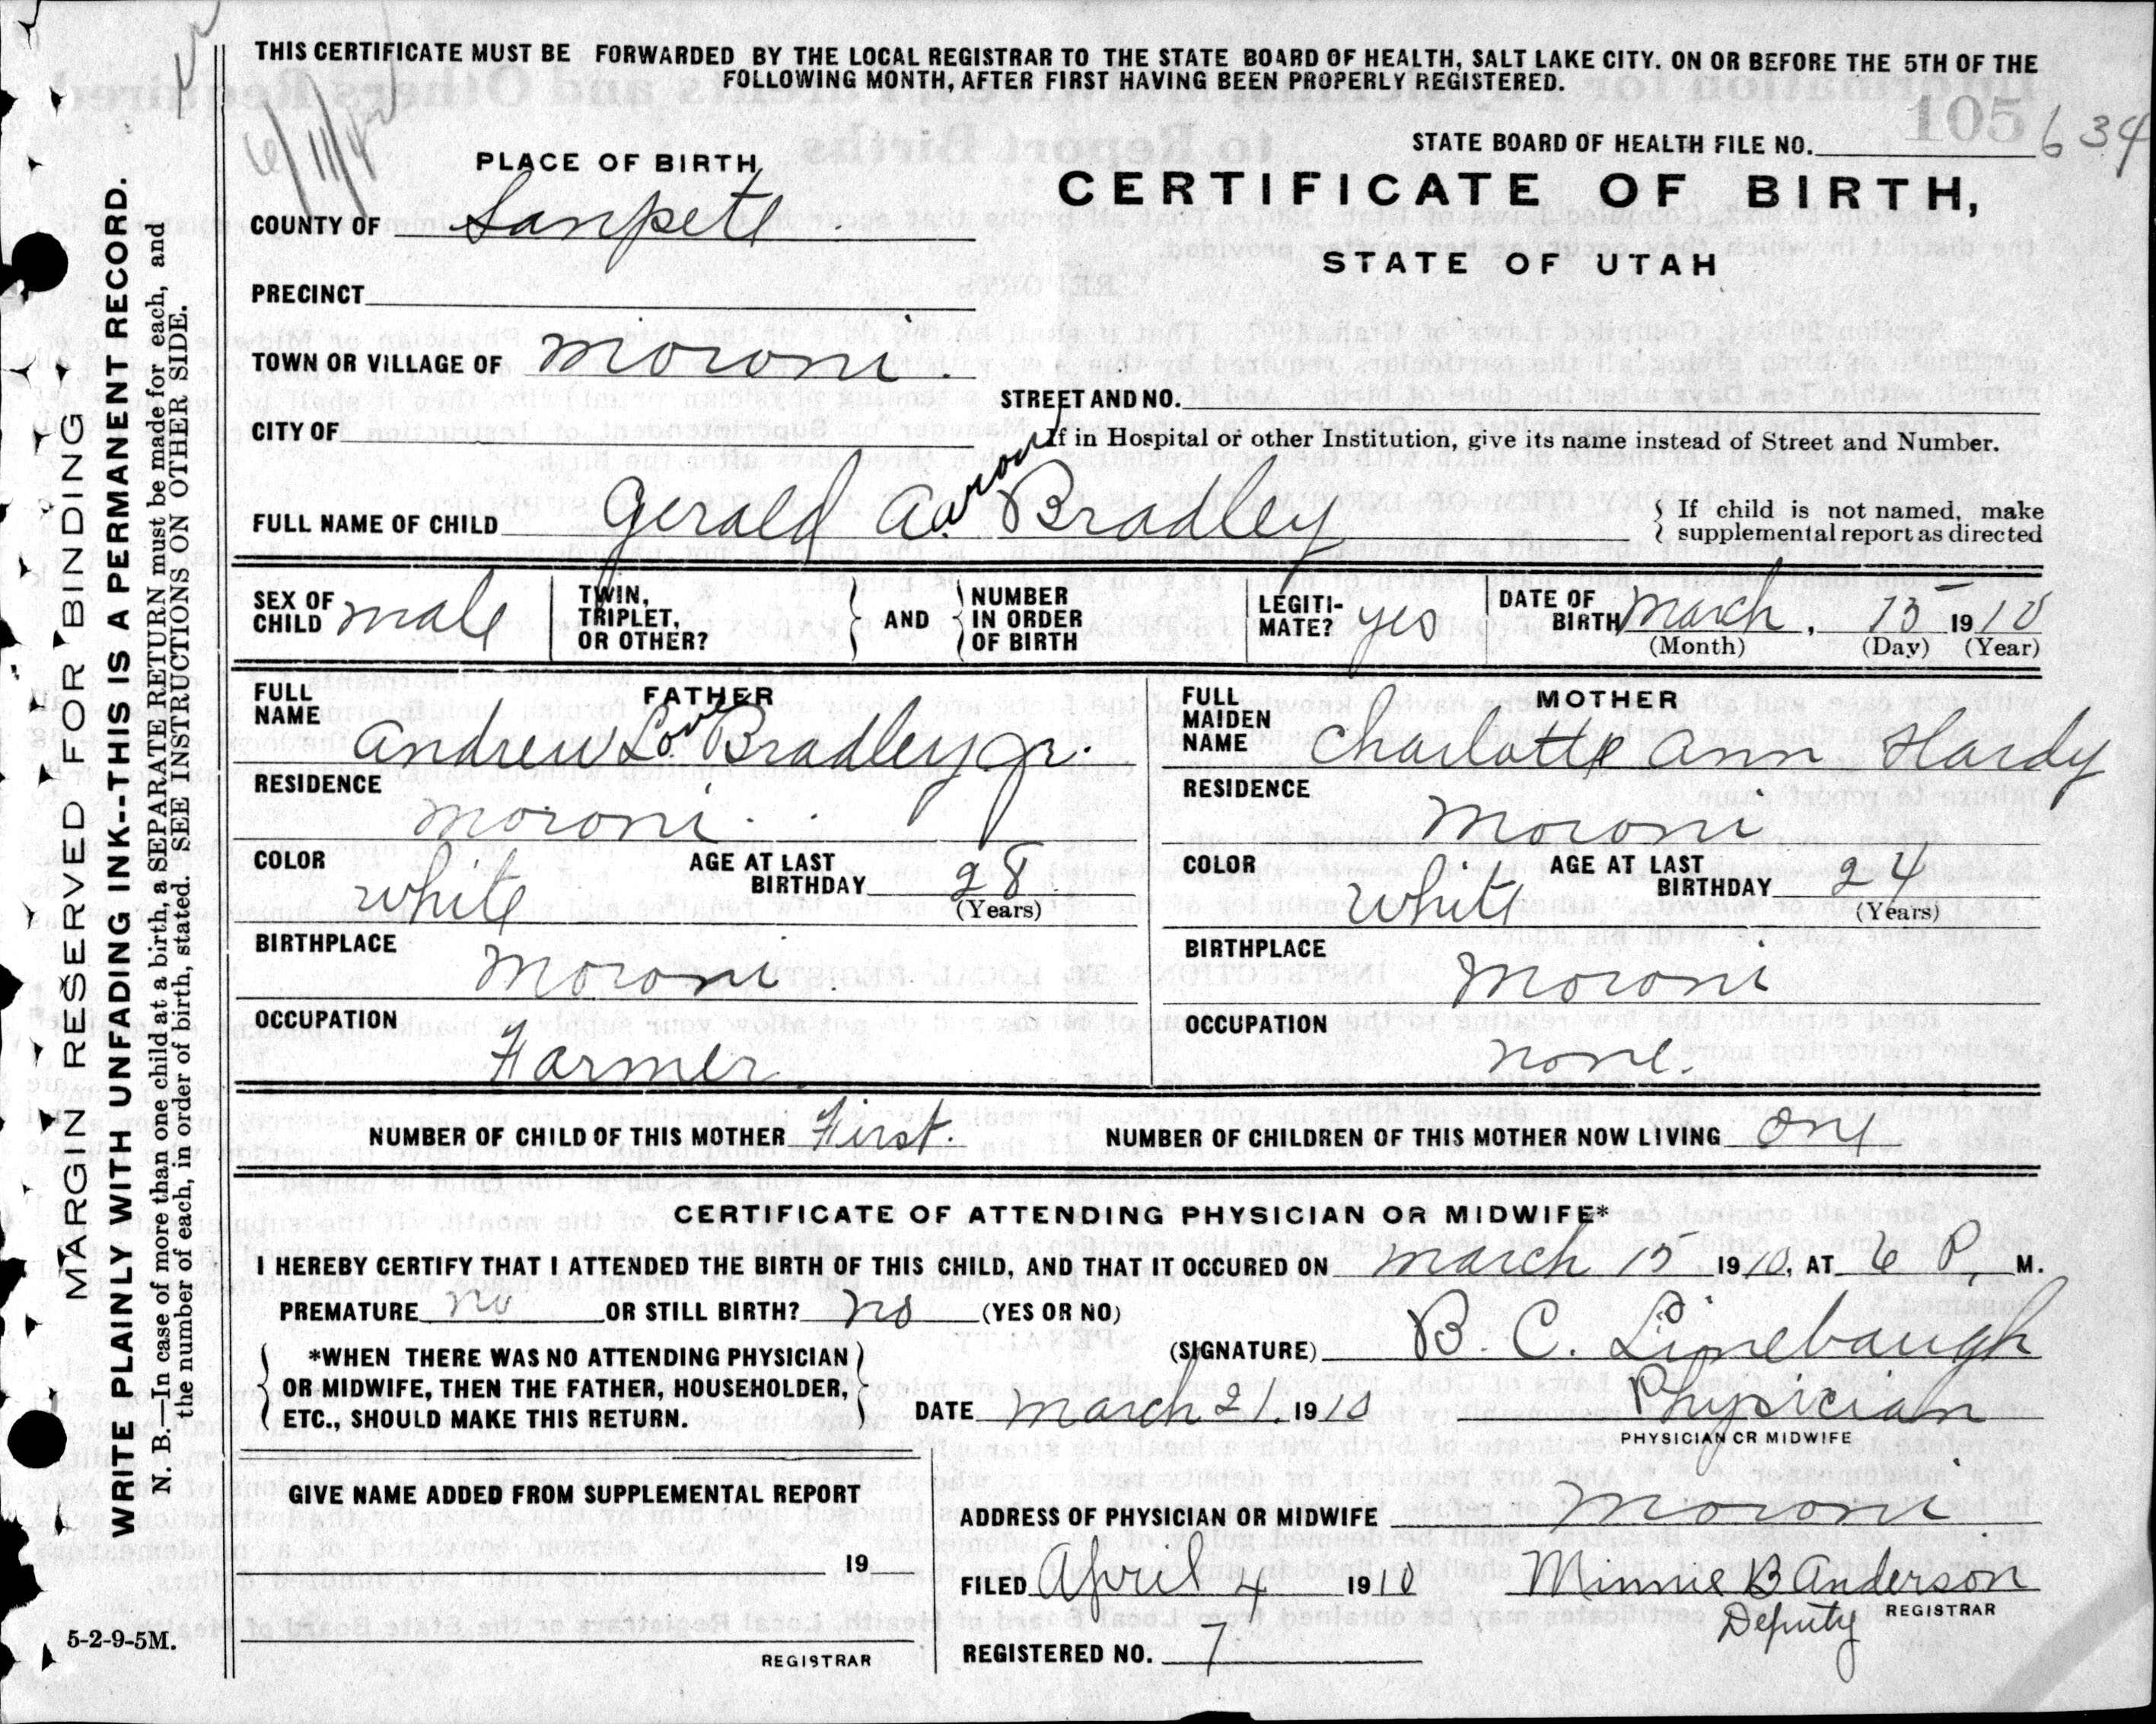 THIS CERTIFICATE MUST BE FORWARDED BY THE LOCAL REGISTRAR TO THE STATE BOARD OF HEALTH, SALT LAKE CITY. ON OR BEFORE THE 5TH OF THE
FOLLOWING MONTH, AFTER FIRST HAVING BEEN PROPERLY REGISTERED.
105 634
STATE BOARD OF HEALTH FILE NO.
PLACE OF BIRTH
CERTIFICATE OF BIRTH,
STATE OF UTAH
COUNTY OF Sanpete
PRECINCT
TOWN OR VILLAGE OF Moroni
STREET AND NO.
CITY OF
If in Hospital or other Institution, give its name instead of Street and Number.
FULL NAME OF CHILD Gerald A. Bradley
If child is not named, make
supplemental report as directed
SEX OF CHILD male
TWIN, TRIPLET, OR OTHER?
AND
NUMBER IN ORDER OF BIRTH
LEGITI-MATE? yes
DATE OF BIRTH March, 15 1910
(Month) (Day) (Year)
FATHER
FULL NAME Andrew Bradley Jr.
RESIDENCE Moroni
COLOR white
AGE AT LAST BIRTHDAY 28
(Years)
BIRTHPLACE Moroni
OCCUPATION Farmer
MOTHER
FULL MAIDEN NAME Charlotte Ann Hardy
RESIDENCE Moroni
COLOR White
AGE AT LAST BIRTHDAY 24
(Years)
BIRTHPLACE Moroni
OCCUPATION none.
NUMBER OF CHILD OF THIS MOTHER First.
NUMBER OF CHILDREN OF THIS MOTHER NOW LIVING One
CERTIFICATE OF ATTENDING PHYSICIAN OR MIDWIFE*
I HEREBY CERTIFY THAT I ATTENDED THE BIRTH OF THIS CHILD, AND THAT IT OCCURED ON March 15 1910, AT 6 P, M.
PREMATURE no OR STILL BIRTH? no (YES OR NO)
*WHEN THERE WAS NO ATTENDING PHYSICIAN
OR MIDWIFE, THEN THE FATHER, HOUSEHOLDER,
ETC., SHOULD MAKE THIS RETURN.
(SIGNATURE) B. C. Linebaugh
DATE March 21. 1910
Physician
PHYSICIAN OR MIDWIFE
GIVE NAME ADDED FROM SUPPLEMENTAL REPORT
19
REGISTRAR
ADDRESS OF PHYSICIAN OR MIDWIFE Moroni
FILED April 4 1910 Minnie B Anderson
Deputy REGISTRAR
REGISTERED NO. 7
5-2-9-5M.
MARGIN RESERVED FOR BINDING
WRITE PLAINLY WITH UNFADING INK--THIS IS A PERMANENT RECORD.
N. B.—In case of more than one child at a birth, a SEPARATE RETURN must be made for each, and
the number of each, in order of birth, stated. SEE INSTRUCTIONS ON OTHER SIDE.